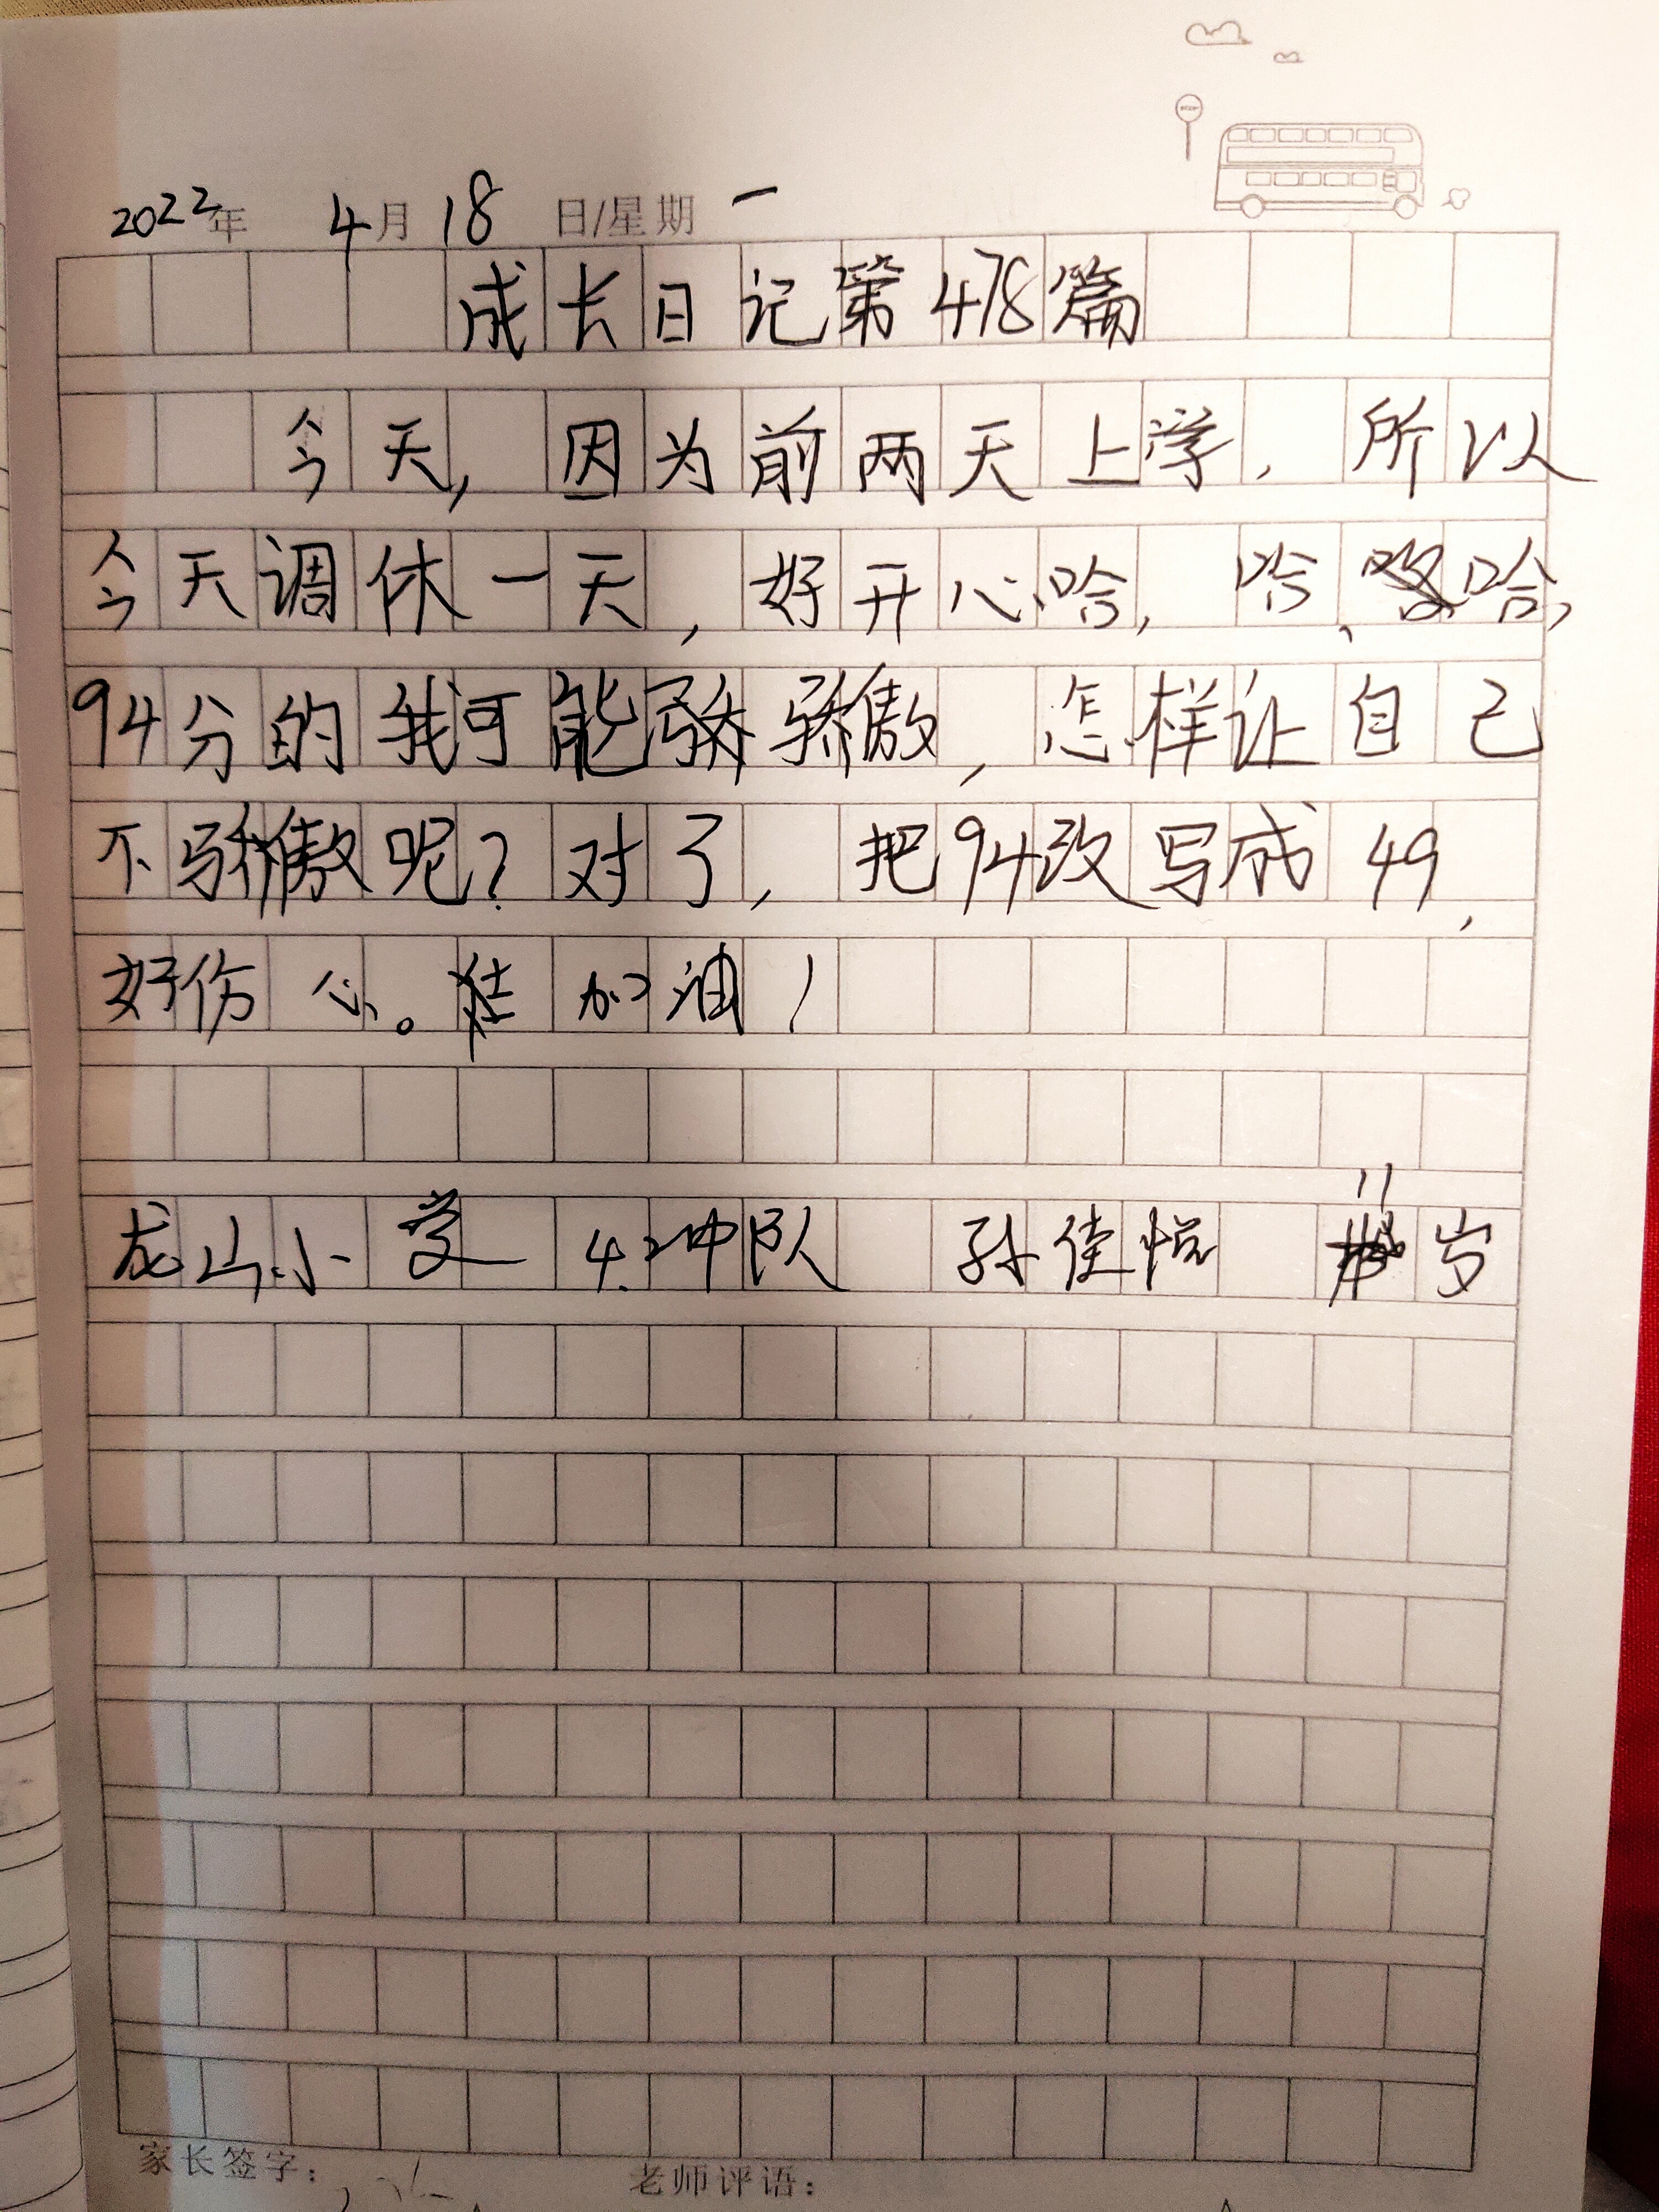 2022年 4月18 日/星期 一
成长日记第478篇
今天,因为前两天上学,所以
今天调休一天,好开心、哈,哈、哈,
94分的我可能骄骄傲,怎样让自己
不骄傲呢?对了,把94改写成49,
好伤心。佳加油!
龙山小学 4.2中队 孙佳悦 11岁
家长签字:
老师评语: